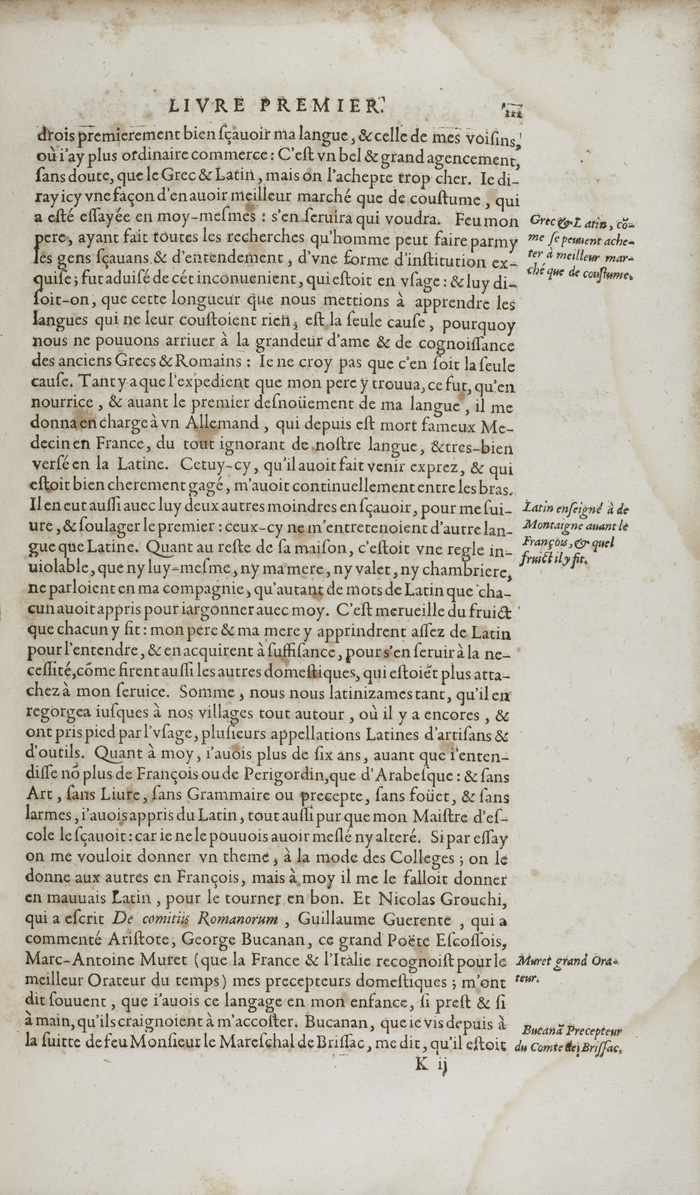 LIVRE PREMIER.
drois premierement bien sçauoir ma langue, & celle de mes voisins,
où i'ay plus ordinaire commerce : C'est vn bel & grand agencement,
sans doute, que le Grec & Latin, mais on l'achepte trop cher. Ie di-
ray icy vne façon d'en auoir meilleur marché que de coustume, qui
a esté essayée en moy-mesmes : s'en seruira qui voudra. Feu mon
pere, ayant fait toutes les recherches qu'homme peut faire parmy
les gens sçauans & d'entendement, d'vne forme d'institution ex-
quise; fut aduisé de cét inconuenient, qui estoit en vsage : & luy di-
soit-on, que cette longueur que nous mettions à apprendre les
langues qui ne leur coustoient rien, est la seule cause, pourquoy
nous ne pouuons arriuer à la grandeur d'ame & de cognoissance
des anciens Grecs & Romains : Ie ne croy pas que c'en soit la seule
cause. Tant y a que l'expedient que mon pere y trouua, ce fut, qu'en
nourrice, & auant le premier desnoüement de ma langue, il me
donna en charge à vn Allemand, qui depuis est mort fameux Me-
decin en France, du tout ignorant de nostre langue, & tres-bien
versé en la Latine. Cetuy-cy, qu'il auoit fait venir exprez, & qui
estoit bien cherement gagé, m'auoit continuellement entre les bras.
Il en eut aussi auec luy deux autres moindres en sçauoir, pour me sui-
ure, & soulager le premier : ceux-cy ne m'entretenoient d'autre lan-
gue que Latine. Quant au reste de sa maison, c'estoit vne regle in-
uiolable, que ny luy-mesme, ny ma mere, ny valet, ny chambriere,
ne parloient en ma compagnie, qu'autant de mots de Latin que cha-
cun auoit appris pour iargonner auec moy. C'est merueille du fruict
que chacun y fit : mon pere & ma mere y apprindrent assez de Latin
pour l'entendre, & en acquirent à suffisance, pour s'en seruir à la ne-
cessité, cõme firent aussi les autres domestiques, qui estoiẽt plus atta-
chez à mon seruice. Somme, nous nous latinizames tant, qu'il en
regorgea iusques à nos villages tout autour, où il y a encores, &
ont pris pied par l'vsage, plusieurs appellations Latines d'artisans &
d'outils. Quant à moy, i'auois plus de six ans, auant que i'enten-
disse nõ plus de François ou de Perigordin, que d'Arabesque : & sans
Art, sans Liure, sans Grammaire ou precepte, sans foüet, & sans
larmes, i'auois appris du Latin, tout aussi pur que mon Maistre d'es-
cole le sçauoit : car ie ne le pouuois auoir meslé ny alteré. Si par essay
on me vouloit donner vn theme, à la mode des Colleges ; on le
donne aux autres en François, mais à moy il me le falloit donner
en mauuais Latin, pour le tourner en bon. Et Nicolas Grouchi,
qui a escrit De comitiis Romanorum, Guillaume Guerente, qui a
commenté Aristote, George Bucanan, ce grand Poëte Escossois,
Marc-Antoine Muret (que la France & l'Italie recognoist pour le
meilleur Orateur du temps) mes precepteurs domestiques ; m'ont
dit souuent, que i'auois ce langage en mon enfance, si prest & si
à main, qu'ils craignoient à m'accoster. Bucanan, que ie vis depuis à
la suitte de feu Monsieur le Mareschal de Brissac, me dit, qu'il estoit
K ij
Grec & Latin, cõ-
me se peuuent ache-
ter à meilleur mar-
ché que de coustume.
Latin enseigné à de
Montaigne auant le
François, & quel
fruict il y fit.
Muret grand Ora-
teur.
Bucanã Precepteur
du Comte de Brissac.